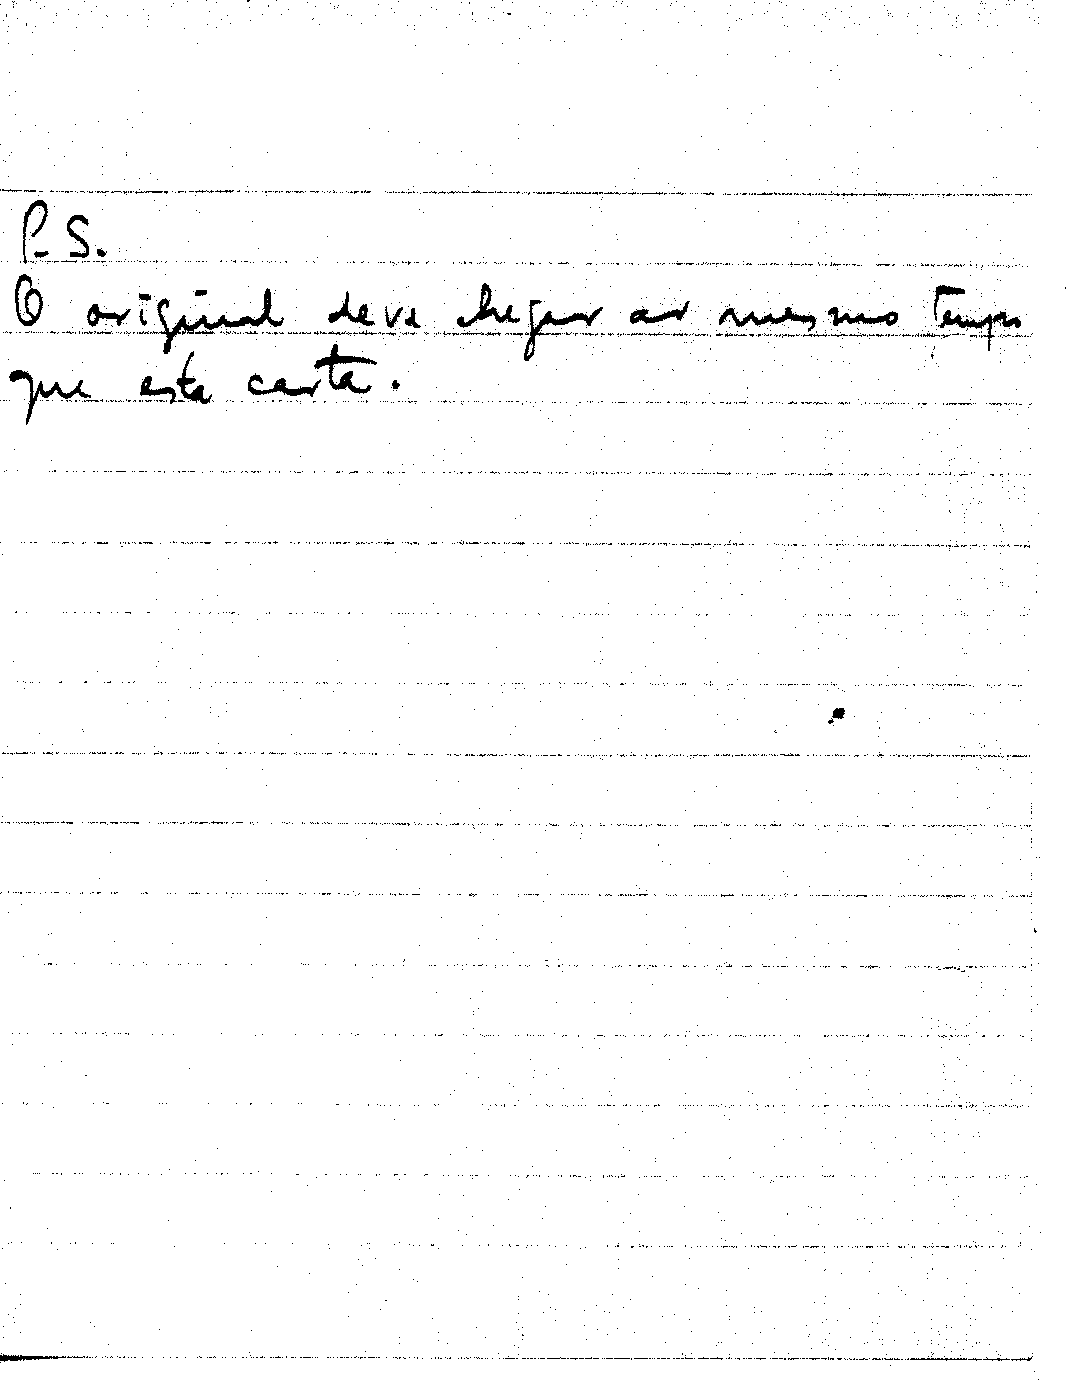 P.S.
O original deve chegar ao mesmo tempo
que esta carta.